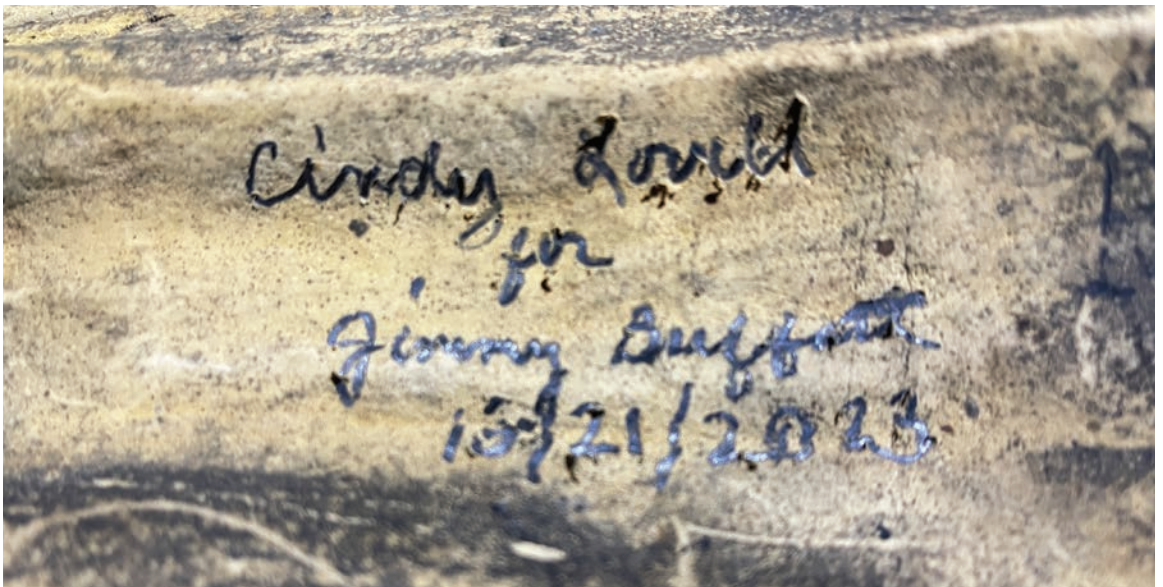 Cindy Lovell
for
Jimmy Buffett
10/21/2023